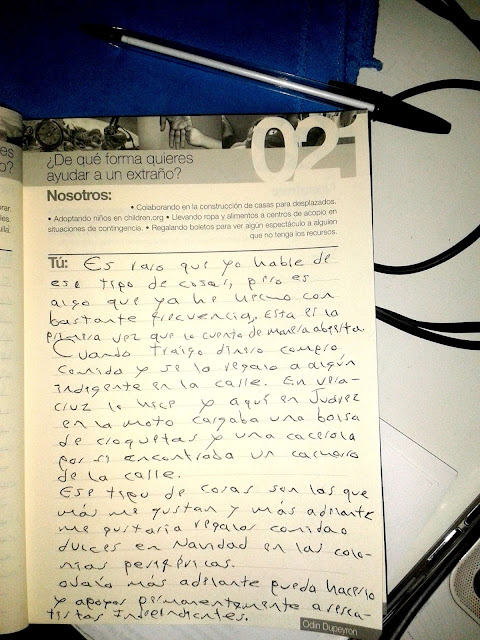 es
o?
021
¿De qué forma quieres
ayudar a un extraño?
Nosotros:
• Colaborando en la construcción de casas para desplazados.
• Adoptando niños en children.org • Llevando ropa y alimentos a centros de acopio en
situaciones de contingencia. • Regalando boletos para ver algún espectáculo a alguien
que no tenga los recursos.
Tú: Es raro que yo hable de
ese tipo de cosas, pero es
algo que ya he hecho con
bastante frecuencia, esta es la
primera vez que lo cuento de manera abierta.
Cuando traigo dinero compro
comida y se lo regalo a algún
indigente en la calle. En vera-
cruz lo hice y aquí en Juárez
en la moto cargaba una bolsa
de croquetas y una cacerola
por si encontraba un
de la calle.
Ese tipo de cosas son las que
más me gustan y más adelante
me gustaría regalar comida o
dulces en Navidad en las colo-
nias periféricas.
Ojalá más adelante pueda hacerlo
y apoyar permanentemente a resca-
tistas Independientes.
Odin Dupeyron